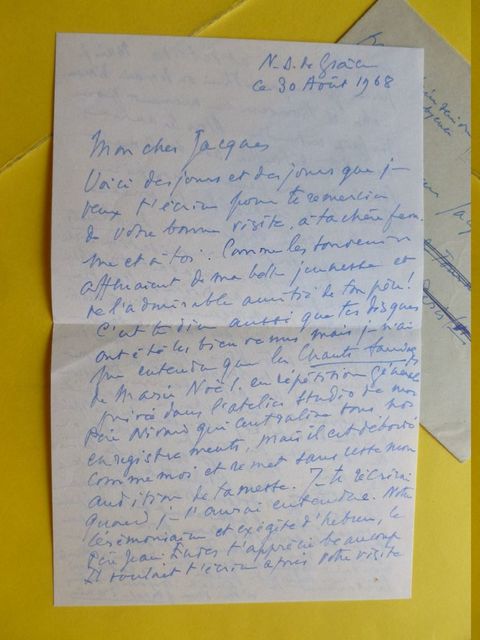 N.D. de Grâce
ce 30 Août 1968
Mon cher Jacques
Voici des jours et des jours que je
veux t'écrire pour te remercier
de votre bonne visite, à ta chère fem
me et à toi. Comme les souvenirs
affluaient de ma belle jeunesse et
de l'admirable amitié de ton père!
C'est te dire aussi que tes disques
ont été les bienvenus mais je n'ai
pu entendre que les Chants
de Marie Noël en répétition générale
privée dans l'atelier studio de nos
Père qui centralise tous nos
enregistrements, mais il est débordé
comme moi et remet sans cesse mon
audition de ta messe. Je te récrirai
quand je l'aurai entendue. Notre
cérémoniaire et exégète d'hébreu, le
Père Jean t'apprécie beaucoup
Il voulait t'écrire après votre visite